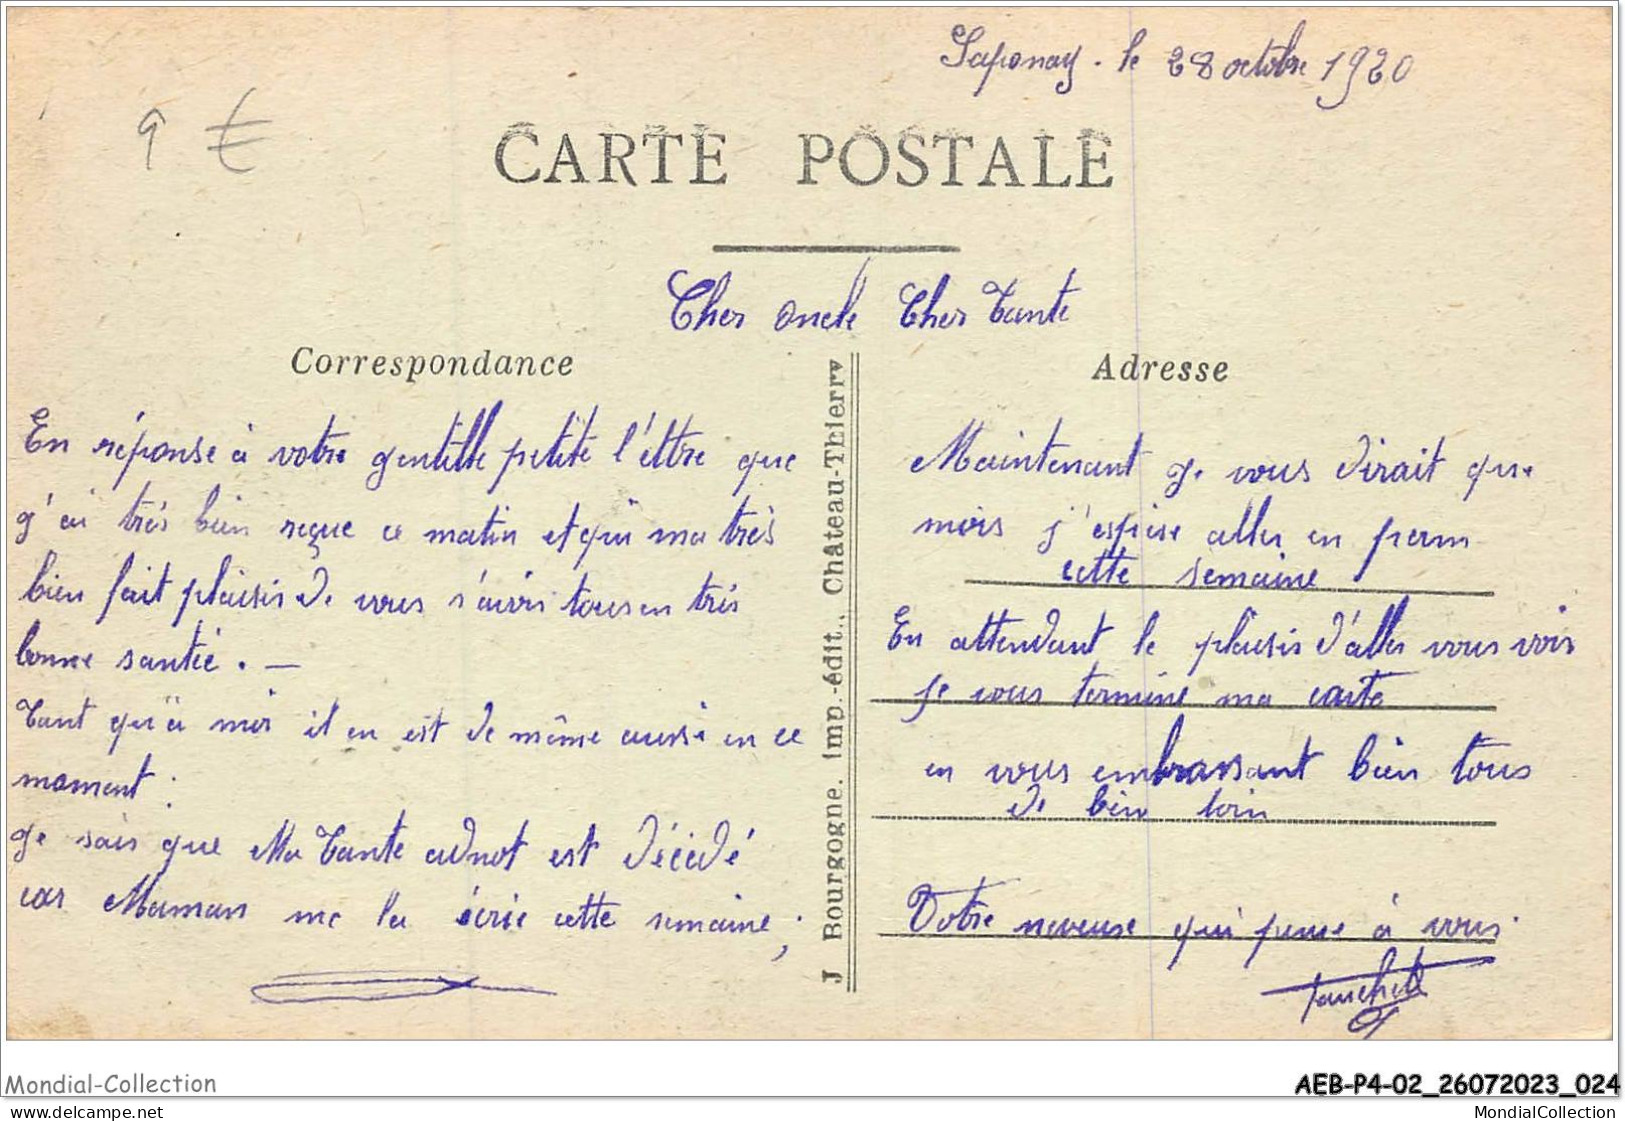 Saponay. le 28 octobre 1920
9 €
CARTE POSTALE
Cher oncle Cher Tante
Correspondance
Adresse
En réponse à votre gentille petite l'éttre que
j'ai très bien reçue ce matin et qui ma très
bien fait plaisir de vous s'avoir tous en très
bonne santée. —
Tant qu'à moi il en est de même aussi en ce
moment :
Je sais que Ma Tante adnot est décédé
car Maman me la écrie cette semaine ;
J Bourgogne. Imp.-édit., Château-Thierry
Maintenant Je vous dirait que
mois j'espère aller en perm
cette semaine.
En attendant le plaisir d'aller vous voir
Je vous termine ma carte
en vous embrassant bien tous
de bien loin
Votre neveuse qui pense à vous.
Mondial-Collection
www.delcampe.net
AEB-P4-02_26072023_024
MondialCollection